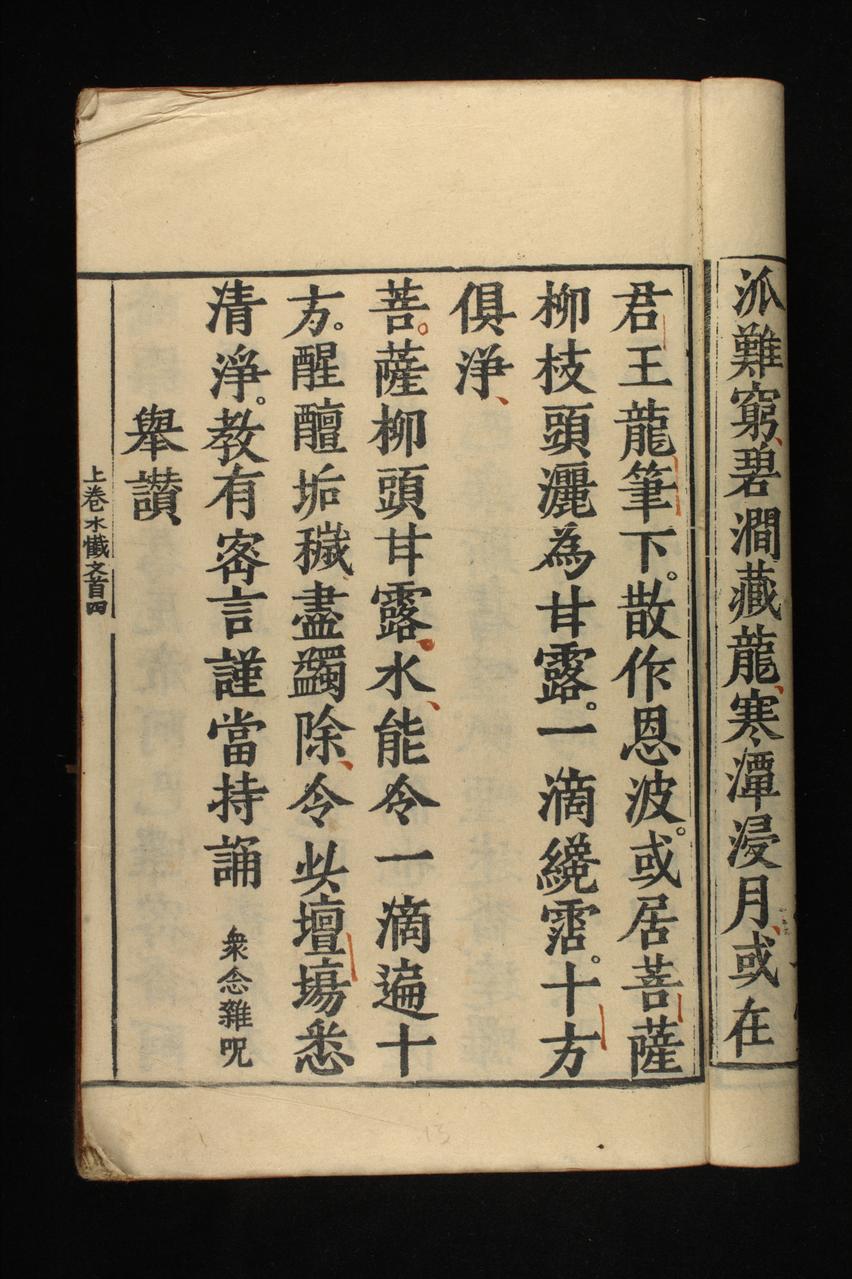 派難窮、碧澗藏龍、寒潭浸月、或在
君王龍筆下。散作恩波。或居菩薩
柳枝頭灑為甘露。一滴纔霑。十方
俱淨、
菩薩柳頭甘露水、能令一滴遍十
方。醒醯垢穢盡蠲除、令此壇塲悉
清淨。教有密言謹當持誦 衆念雜呪
舉讃
上卷水懺文首四